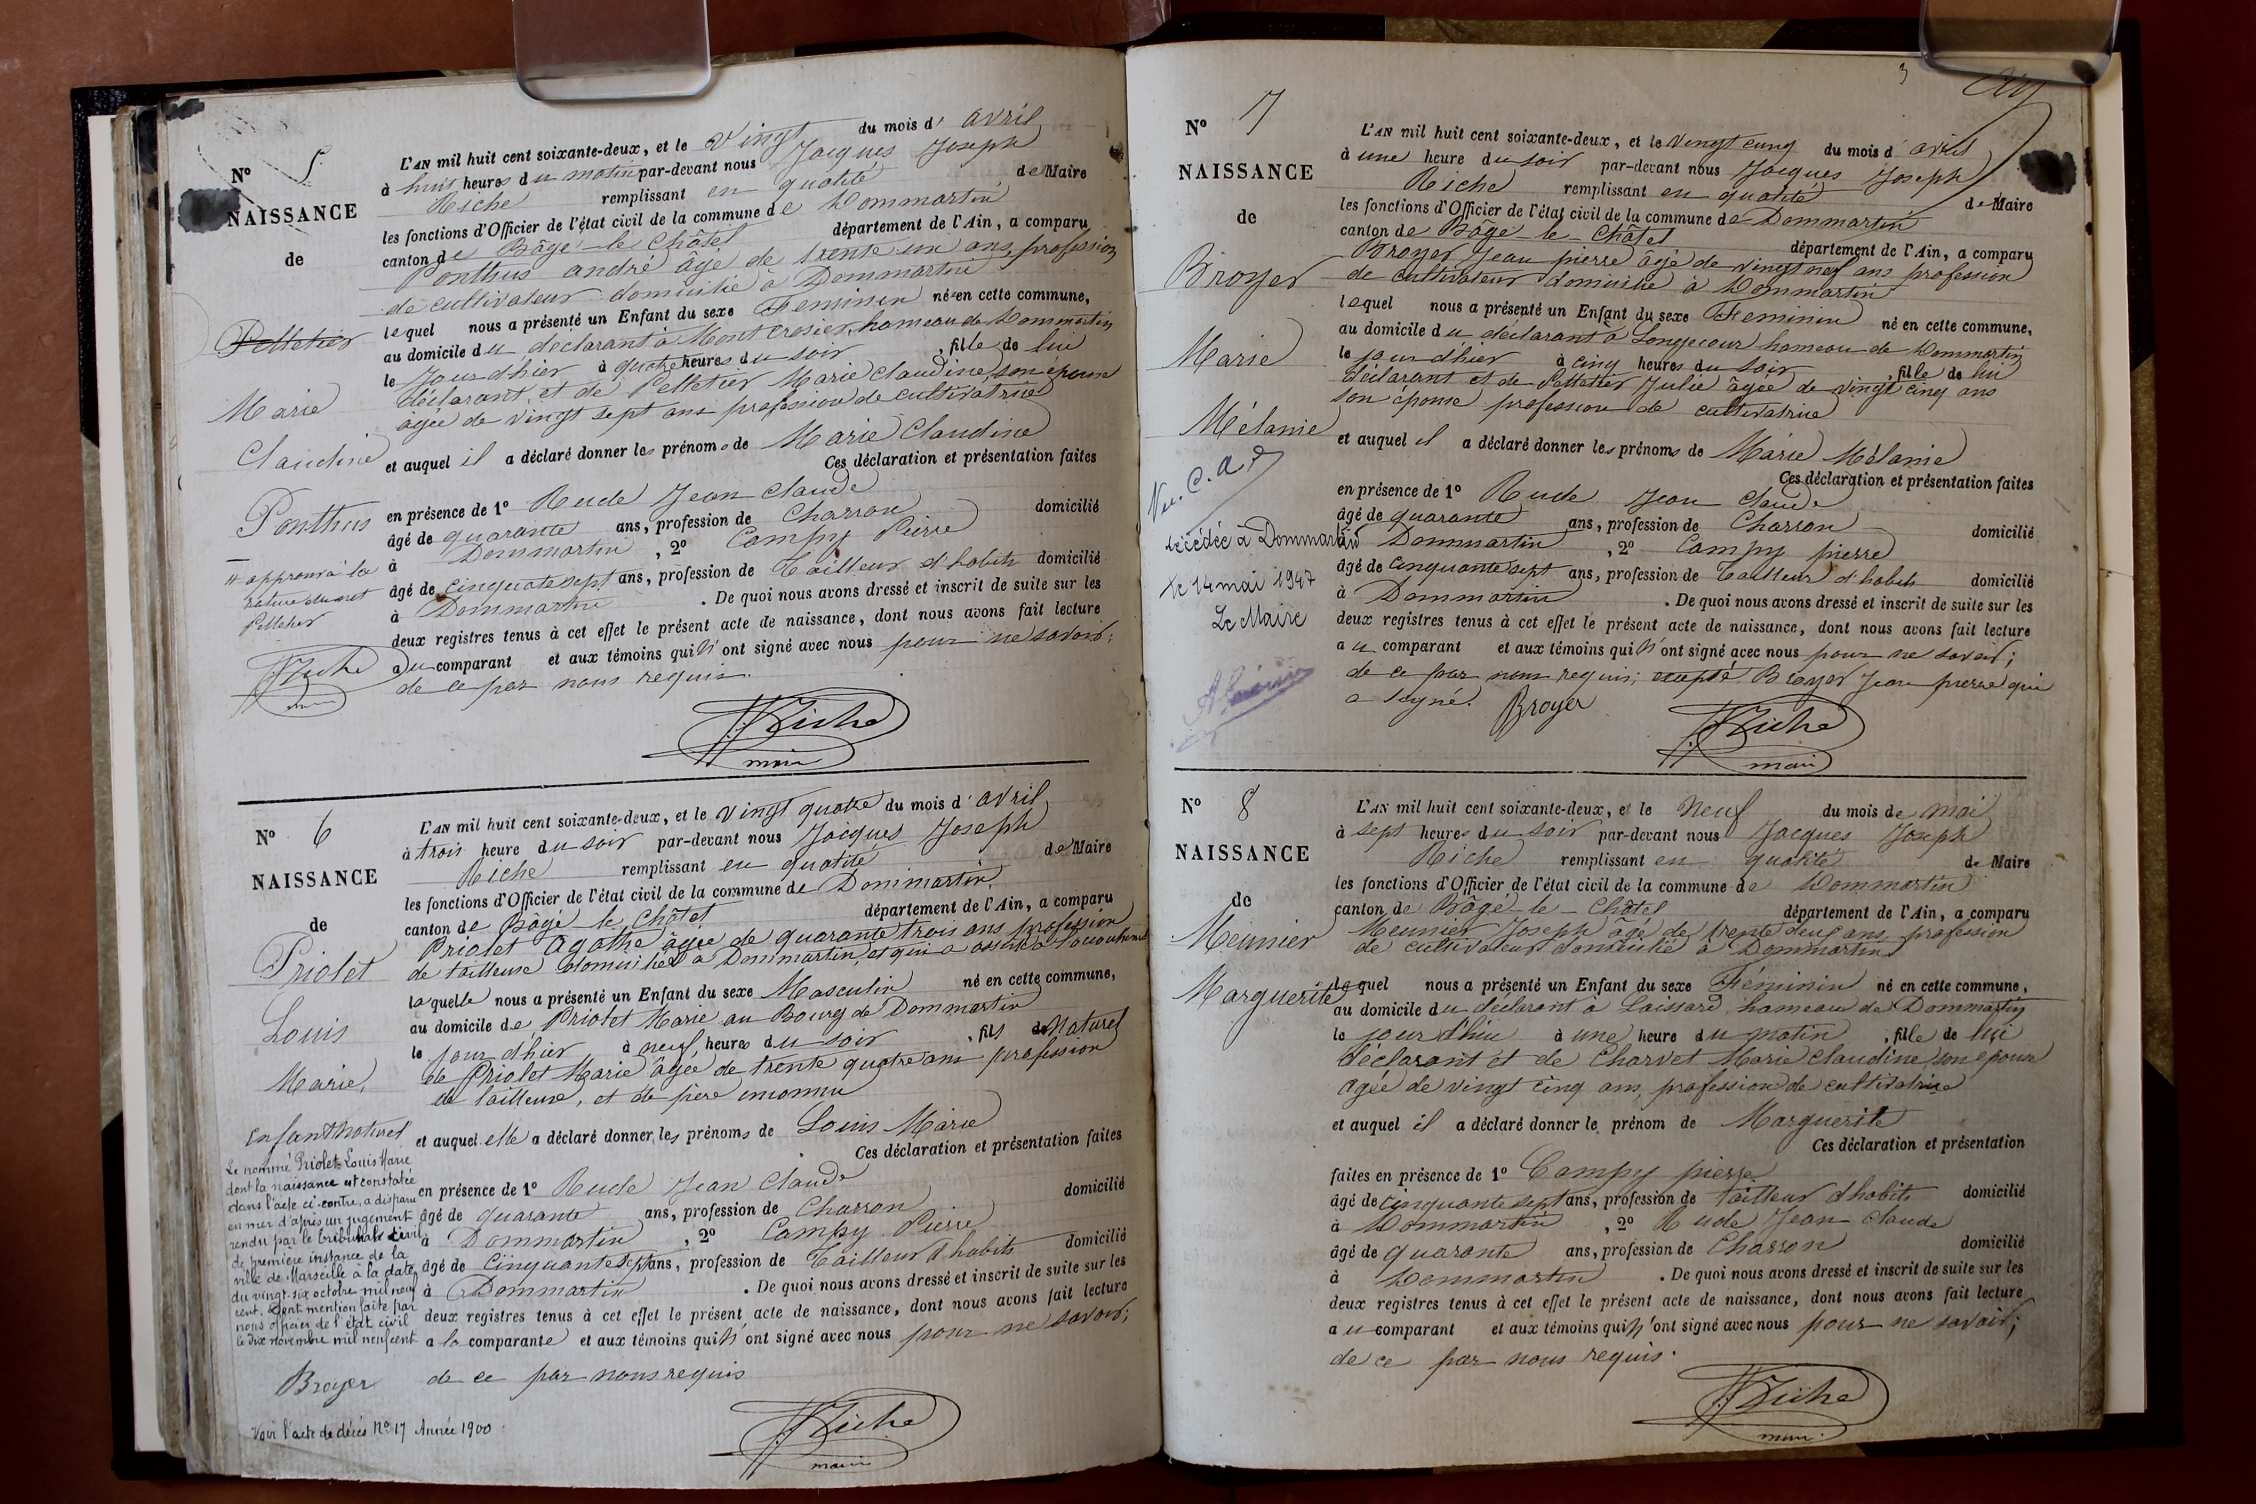 N° 5
NAISSANCE
de
Pelletier
Marie
Claudine
Ponthus
# approuvé la
rature du mot
Pelletier
JJ Riche
maire
L'AN mil huit cent soixante-deux, et le Vingt du mois d'avril
à huit heures du matin par-devant nous Jacques Joseph
Riche remplissant en qualité de Maire
les fonctions d'Officier de l'état civil de la commune de Dommartin
canton de Bâgé-le-Châtel département de l'Ain, a comparu
Ponthus andré âgé de trente un ans, profession
de cultivateur domicilié à Dommartin
lequel nous a présenté un Enfant du sexe Feminin né en cette commune,
au domicile du déclarant à Mont Crosier, hameau de Dommartin
le jour d'hier à quatre heures du soir, fille de lui
déclarant, et de Pelletier Marie Claudine, son épouse
âgée de vingt sept ans profession de cultivatrice
et auquel il a déclaré donner les prénoms de Marie Claudine
Ces déclaration et présentation faites
en présence de 1° Rude Jean Claude
âgé de quarante ans, profession de Charron domicilié
à Dommartin, 2° Campy Pierre
âgé de cinquante sept ans, profession de Tailleur d'habits domicilié
à Dommartin. De quoi nous avons dressé et inscrit de suite sur les
deux registres tenus à cet effet le présent acte de naissance, dont nous avons fait lecture
au comparant et aux témoins qui n'ont signé avec nous pour ne savoir;
de ce par nous requis.
JJ Riche
maire
N° 6
NAISSANCE
de
Priolet
Louis
Marie,
Enfant Naturel
Le nommé Priolet Louis Marie
dont la naissance est constatée
dans l'acte ci-contre, a disparu
en mer d'après un jugement
rendu par le tribunal civil
de première instance de la
ville de Marseille à la date
du vingt-six octobre mil neuf
cent. Dont mention faite par
nous officier de l'état civil
le dix novembre mil neuf cent
Broyer
Voir l'acte de décès N° 17 Année 1900
L'AN mil huit cent soixante-deux, et le Vingt quatre du mois d'avril
à trois heure du soir par-devant nous Jacques Joseph
Riche remplissant en qualité de Maire
les fonctions d'Officier de l'état civil de la commune de Dommartin
canton de Bâgé-le-Châtel département de l'Ain, a comparu
Priolet Agathe âgée de quarante trois ans profession
de tailleuse domiciliée à Dommartin, et qui a assisté à l'accouchement
laquelle nous a présenté un Enfant du sexe Masculin né en cette commune,
au domicile de Priolet Marie au Bourg de Dommartin
le jour d'hier à neuf heures du soir, fils Naturel
de Priolet Marie âgée de trente quatre ans profession
de tailleuse, et de père inconnu
et auquel elle a déclaré donner les prénoms de Louis Marie
Ces déclaration et présentation faites
en présence de 1° Rude Jean Claude
âgé de quarante ans, profession de Charron domicilié
à Dommartin, 2° Campy Pierre
âgé de Cinquante sept ans, profession de Tailleur d'habits domicilié
à Dommartin. De quoi nous avons dressé et inscrit de suite sur les
deux registres tenus à cet effet le présent acte de naissance, dont nous avons fait lecture
a la comparante et aux témoins qui n'ont signé avec nous pour ne savoir;
de ce par nous requis
JJ Riche
maire
3
N° 7
NAISSANCE
de
Broyer
Marie
Mélanie
décédée à Dommartin
le 14 mai 1947
Le Maire
L'AN mil huit cent soixante-deux, et le Vingt cinq du mois d'avril
à une heure du soir par-devant nous Jacques Joseph
Riche remplissant en qualité de Maire
les fonctions d'Officier de l'état civil de la commune de Dommartin
canton de Bâgé-le-Châtel département de l'Ain, a comparu
Broyer Jean pierre âgé de vingt neuf ans profession
de cultivateur domicilié à Dommartin
lequel nous a présenté un Enfant du sexe Feminin né en cette commune,
au domicile du déclarant à Longecour hameau de Dommartin
le jour d'hier à cinq heures du soir, fille de lui
déclarant et de Pelletier Julie âgée de vingt cinq ans
son épouse profession de cultivatrice
et auquel il a déclaré donner les prénoms de Marie Mélanie
Ces déclaration et présentation faites
en présence de 1° Rude Jean Claude
âgé de quarante ans, profession de Charron domicilié
à Dommartin, 2° Campy pierre
âgé de cinquante sept ans, profession de Tailleur d'habits domicilié
à Dommartin. De quoi nous avons dressé et inscrit de suite sur les
deux registres tenus à cet effet le présent acte de naissance, dont nous avons fait lecture
au comparant et aux témoins qui n'ont signé avec nous pour ne savoir;
de ce par nous requis; excepté Broyer Jean pierre qui
a signé. Broyer
JJ Riche
maire
N° 8
NAISSANCE
de
Meunier
Marguerite
L'AN mil huit cent soixante-deux, et le Neuf du mois de mai
à sept heures du soir par-devant nous Jacques Joseph
Riche remplissant en qualité de Maire
les fonctions d'Officier de l'état civil de la commune de Dommartin
canton de Bâgé-le-Châtel département de l'Ain, a comparu
Meunier Joseph âgé de trente deux ans, profession
de cultivateur domicilié à Dommartin
lequel nous a présenté un Enfant du sexe Féminin né en cette commune,
au domicile du déclarant à Loissard hameau de Dommartin
le jour d'hier à une heure du matin, fille de lui
déclarant et de Charvet Marie Claudine, son épouse
agée de vingt cinq ans, profession de cultivatrice
et auquel il a déclaré donner le prénom de Marguerite
Ces déclaration et présentation
faites en présence de 1° Campy pierre
âgé de cinquante sept ans, profession de tailleur d'habits domicilié
à Dommartin, 2° Rude Jean Claude
âgé de quarante ans, profession de Charron domicilié
à Dommartin. De quoi nous avons dressé et inscrit de suite sur les
deux registres tenus à cet effet le présent acte de naissance, dont nous avons fait lecture
au comparant et aux témoins qui n'ont signé avec nous pour ne savoir;
de ce par nous requis.
JJ Riche
maire